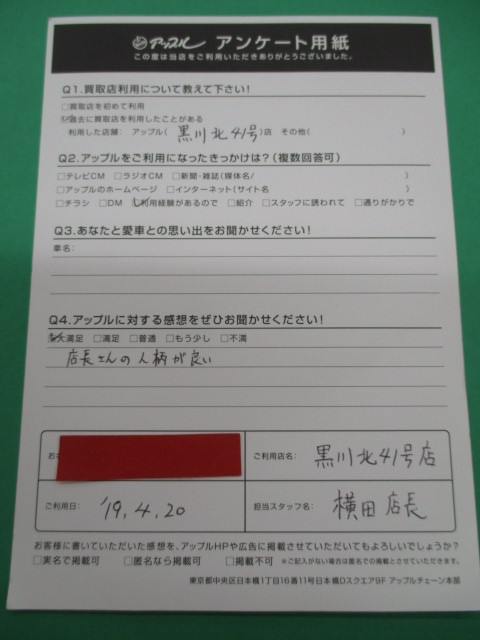 アップル アンケート用紙
この度は当店をご利用いただきありがとうございました。
Q1.買取店利用について教えて下さい!
□買取店を初めて利用
☑過去に買取店を利用したことがある
利用した店舗: アップル( 黒川北41号 )店 その他( )
Q2.アップルをご利用になったきっかけは?(複数回答可)
□テレビCM □ラジオCM □新聞・雑誌(媒体名/ )
□アップルのホームページ □インターネット(サイト名 )
□チラシ □DM ☑利用経験があるので □紹介 □スタッフに誘われて □通りがかりで
Q3.あなたと愛車との思い出をお聞かせください!
車名:
Q4.アップルに対する感想をぜひお聞かせください!
☑大満足 □満足 □普通 □もう少し □不満
店長さんの人柄が良い
お
ご利用店名: 黒川北41号店
ご利用日: '19.4.20
担当スタッフ名: 横田店長
お客様に書いていただいた感想を、アップルHPや広告に掲載させていただいてもよろしいでしょうか?
□実名で掲載可 □匿名なら掲載可 □掲載不可 ※ご記入がない場合は匿名での掲載とさせていただきます。
東京都中央区日本橋1丁目16番11号日本橋Dスクエア9F アップルチェーン本部